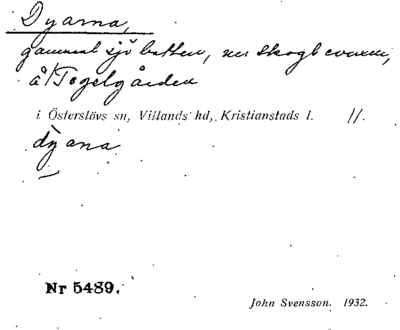 Dyarna,
gammal sjöbotten, nu skogbevuxen,
å Togelgården
i Österslövs sn, Villands hd, Kristianstads l. //.
dyana
Nr 5489.
John Svensson. 1932.